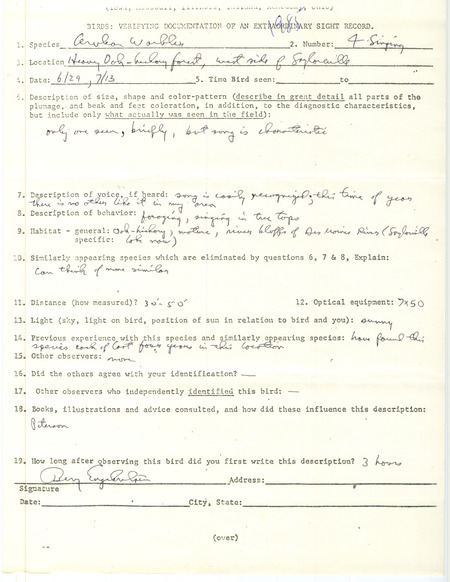 (Iowa, Missouri, Illinois, Indiana, Kentucky, Ohio)
BIRDS: VERIFYING DOCUMENTATION OF AN EXTRAORDINARY SIGHT RECORD.
1983
1. Species Cerulean Warbler 2. Number: 4 Singing
3. Location Heavy Oak-hickory forest, west side of Saylorville
4. Date: 6/29, 7/13 5. Time Bird seen: to
6. Description of size, shape and color-pattern (describe in great detail all parts of the
plumage, and beak and feet coloration, in addition, to the diagnostic characteristics,
but include only what actually was seen in the field):
only one seen, briefly, but song is characteristic
7. Description of voice, if heard: song is easily recognized, this time of year
there is no other like it in my area
8. Description of behavior: foraging, singing in tree tops
9. Habitat - general: Oak-hickory, mature, river bluffs of Des Moines River (Saylorville
specific: Lake now)
10. Similarly appearing species which are eliminated by questions 6, 7 & 8, Explain:
can think of none similar
11. Distance (how measured)? 30'-50' 12. Optical equipment: 7x50
13. Light (sky, light on bird, position of sun in relation to bird and you): sunny
14. Previous experience with this species and similarly appearing species: have found this
species each of last four years in this location
15. Other observers: none
16. Did the others agree with your identification? —
17. Other observers who independently identified this bird: —
18. Books, illustrations and advice consulted, and how did these influence this description:
Peterson
19. How long after observing this bird did you first write this description? 3 hours
Address:
Signature
Date: City, State:
(over)